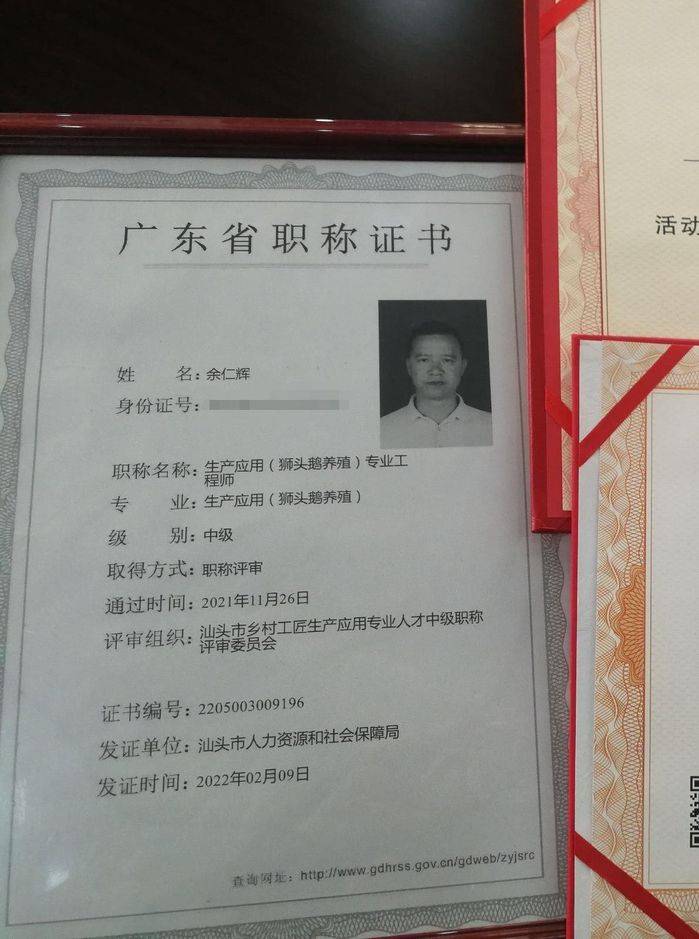 广东省职称证书
姓名：余仁辉
身份证号：
职称名称：生产应用（狮头鹅养殖）专业工
程师
专业：生产应用（狮头鹅养殖）
级别：中级
取得方式：职称评审
通过时间：2021年11月26日
评审组织：汕头市乡村工匠生产应用专业人才中级职称
评审委员会
证书编号：2205003009196
发证单位：汕头市人力资源和社会保障局
发证时间：2022年02月09日
查询网址：http://www.gdhrss.gov.cn/gdweb/zyjsrc
活动